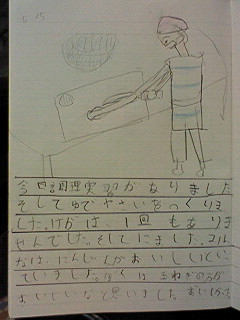 5 15
今日調理実習がありました
そしてゆでやさいをつくりま
した。けがは、1回もありま
せんでした。そしてにました。
なは、にんじんがおいしいとい
っていました。ぼくは玉ねぎのほうが
おいしいなと思いました